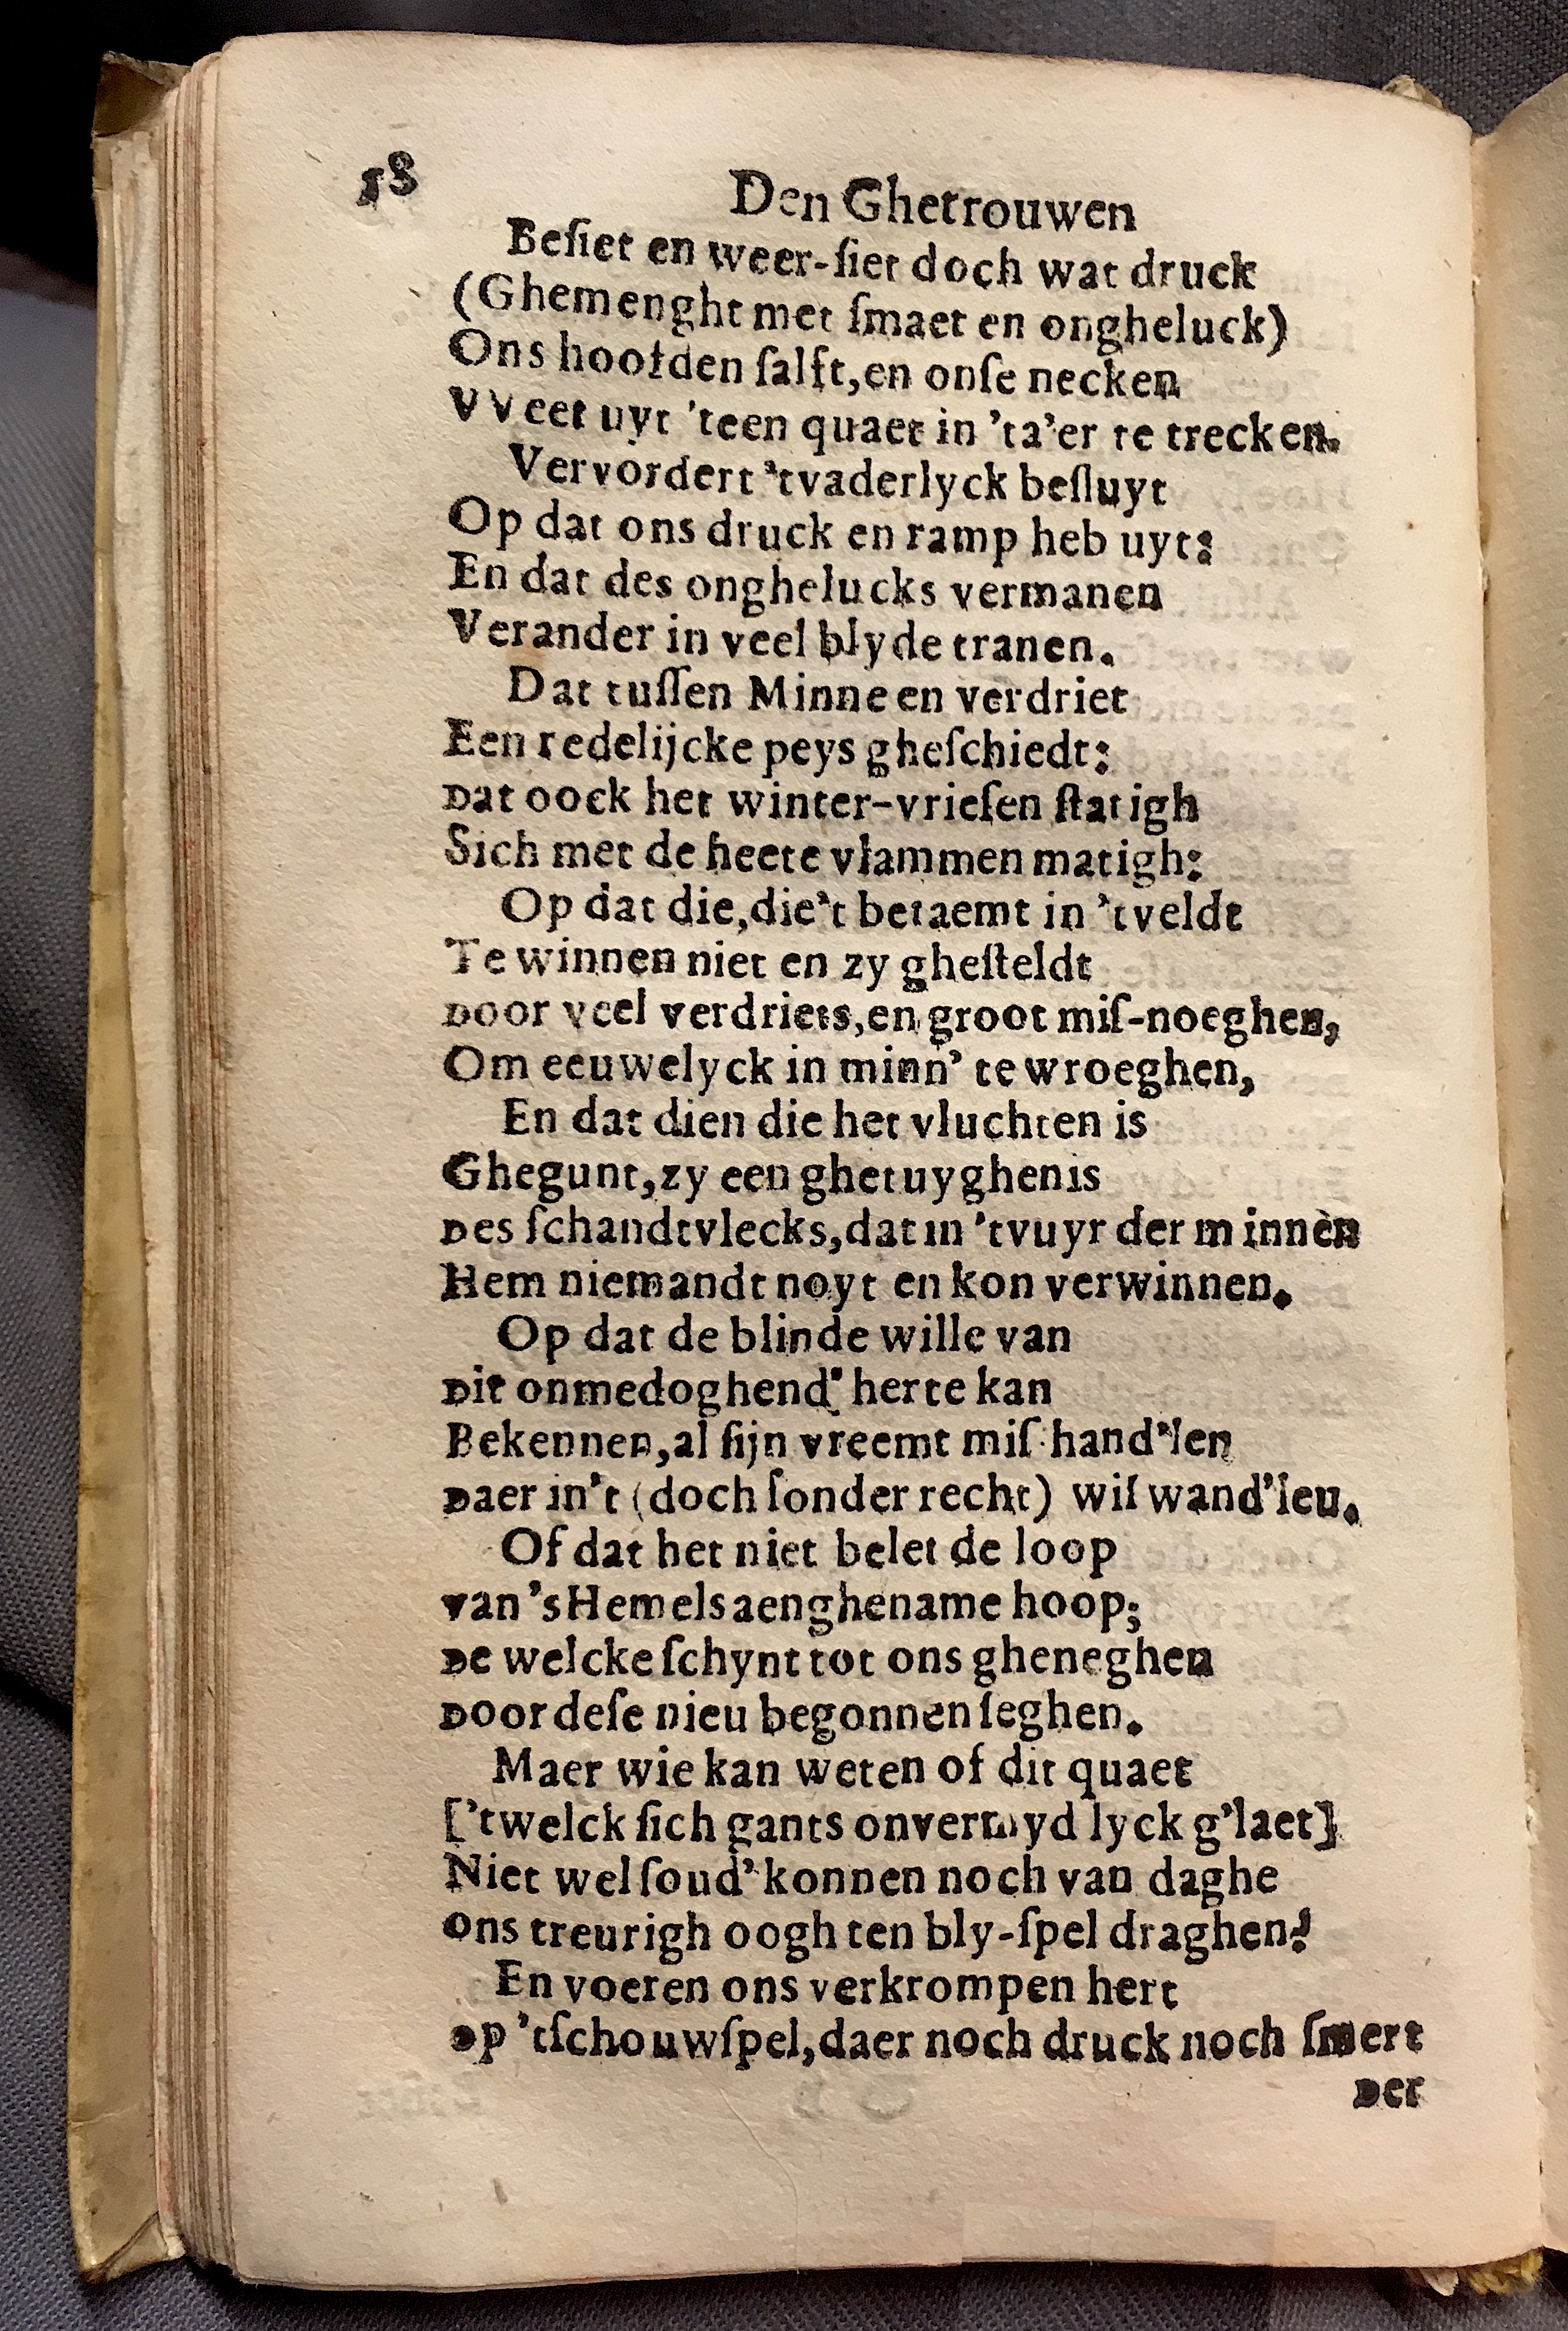 58
Den Ghetrouwen
Beſiet en weer-ſiet doch wat druck
(Ghemenght met ſmaet en ongheluck)
Ons hoofden ſalft, en onſe necken
VVeet uyt 'teen quaet in 'ta'er te trecken.
Vervordert 'tvaderlyck beſluyt
Op dat ons druck en ramp heb uyt:
En dat des onghelucks vermanen
Verander in veel blyde tranen.
Dat tuſſen Minne en verdriet
Een redelijcke peys gheſchiedt:
Dat oock het winter-vrieſen ſtatigh
Sich met de heete vlammen matigh:
Op dat die, die't betaemt in 'tveldt
Te winnen niet en zy gheſteldt
Door veel verdriets, en groot miſ-noeghen,
Om eeuwelyck in minn' te wroeghen,
En dat dien die het vluchten is
Ghegunt, zy een ghetuyghenis
Des ſchandtvlecks, dat in 'tvuyr der minnen
Hem niemandt noyt en kon verwinnen.
Op dat de blinde wille van
Dit onmedoghend' herte kan
Bekennen, al ſijn vreemt miſ-hand'len
Daer in't (doch ſonder recht) wil wand'leu.
Of dat het niet belet de loop
van 's Hemels aenghename hoop;
De welcke ſchynt tot ons gheneghen
Door deſe nieu begonnen ſeghen.
Maer wie kan weten of dit quaet
['twelck ſich gants onvermyd lyck g'laet]
Niet wel ſoud' konnen noch van daghe
Ons treurigh oogh ten bly-ſpel draghen?
En voeren ons verkrompen hert
Op 'tſchouwſpel, daer noch druck noch ſmert
Der